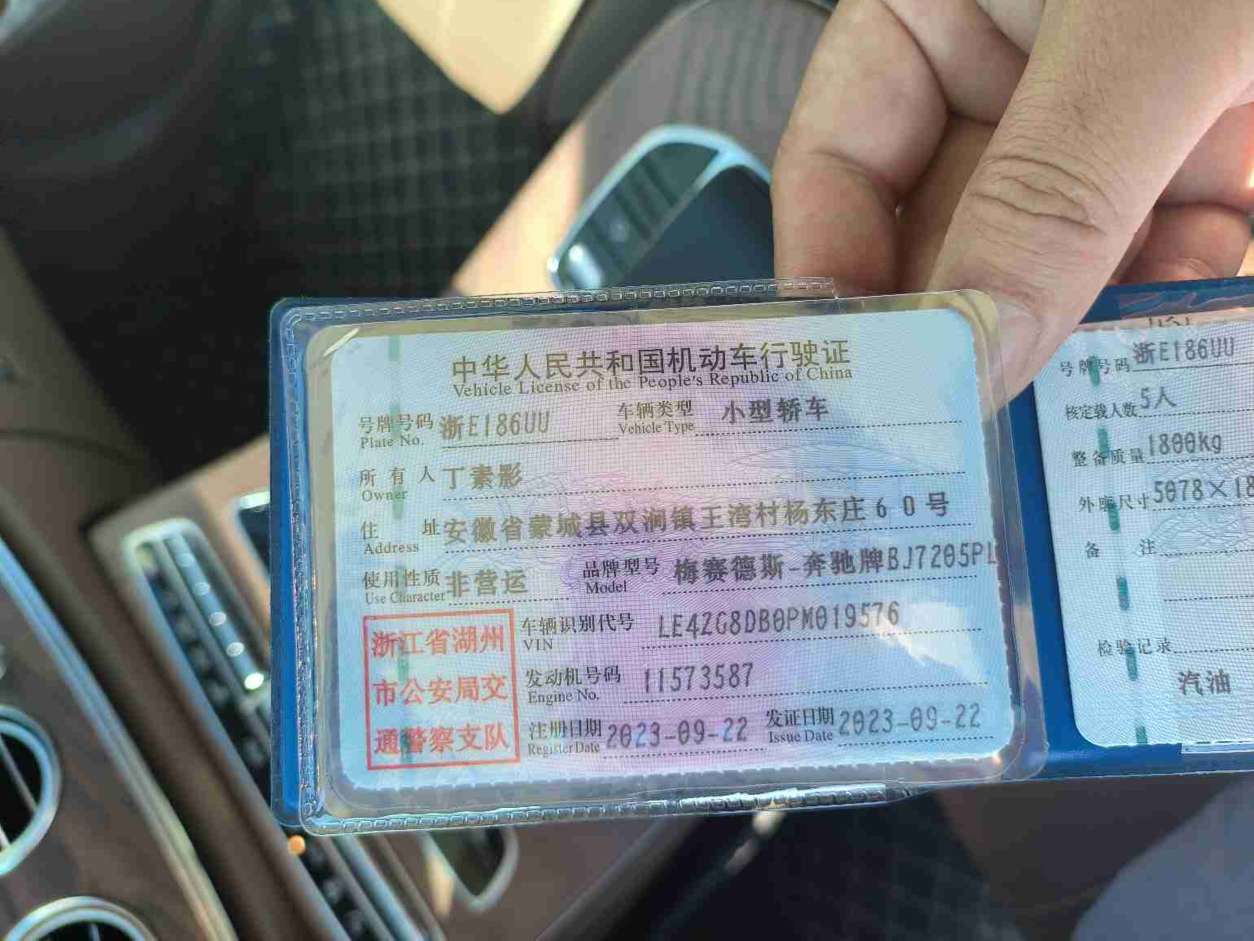 中华人民共和国机动车行驶证
Vehicle License of the People's Republic of China
号牌号码 浙E186UU 车辆类型 小型轿车
Plate No. Vehicle Type
所有人 丁素影
Owner
住址 安徽省蒙城县双涧镇王湾村杨东庄60号
Address
使用性质 非营运 品牌型号 梅赛德斯-奔驰牌BJ7205PL
Use Character Model
浙江省湖州
市公安局交
通警察支队
车辆识别代号 LE4ZG8DB0PM019576
VIN
发动机号码 11573587
Engine No.
注册日期 2023-09-22 发证日期 2023-09-22
Register Date Issue Date
号牌号码 浙E186UU
核定载人数 5人
整备质量 1800kg
外廓尺寸 5078×18
备注
检验记录
汽油